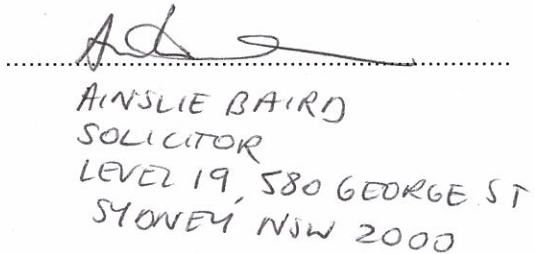 AINSLIE BAIRD
SOLICITOR
LEVEL 19, 580 GEORGE ST
SYDNEY NSW 2000